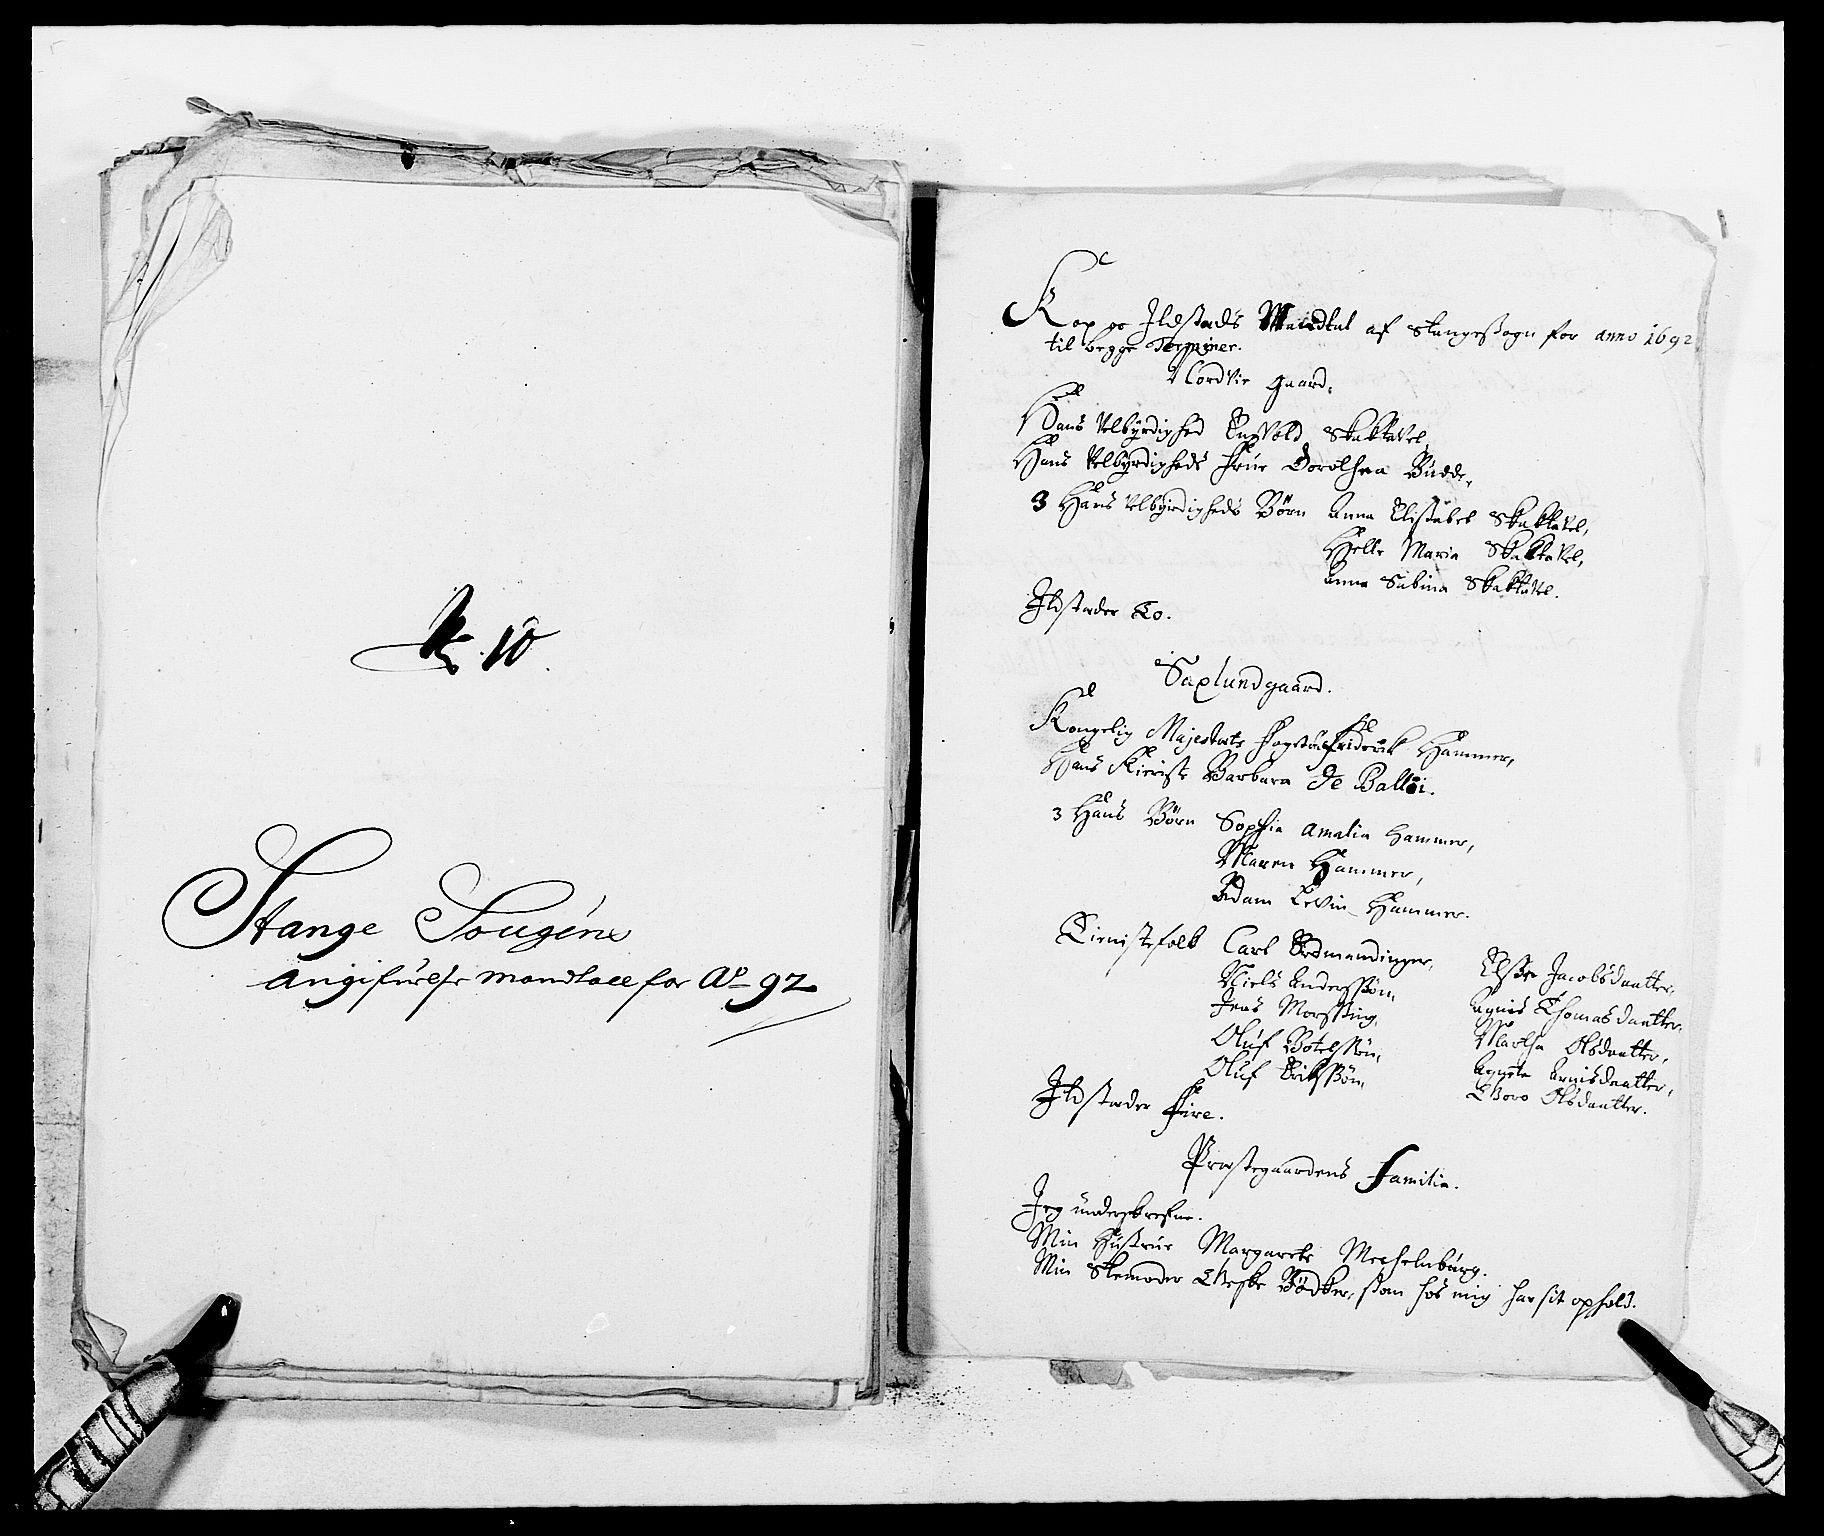 N. 10.
Stange Sougens
angifuelse mandtall for Ao 92
Kop og Ildsteds Mandtal af Stangesogn for anno 1692
til begge Terminer.
Nordvie gaard.
Hans Velbyrdighed Engvold Skaktavel,
Hans Velbyrdigheds Frue Dorothea Budde,
3 Hans Velbyrdigheds Børn Anna Elisabet Skaktavel,
Helle Maria Skaktavel,
Anna Sabina Skaktavel.
Ildstæder to.
Saxlundgaard.
Kongelig Majestæts Foget Friderik Hammer,
Hans Kieriste Barbara de Balløi.
3 Hans Børn Sophia Amalia Hammer,
Maren Hammer,
Adam Levin Hammer.
Tienistefolk Carl Ordmandinger,
Niels Anderssøn,
Jens Morssing,
Oluf Botelssøn,
Oluf Erikssøn,
Elsse Jacobsdaatter,
Agnis Thomasdaatter,
Martha Olsdaatter,
Agnete Arnisdaatter,
Thoro Olsdaatter.
Ildstæder Fire.
Præstegaardens Familia.
Jeg underskrefne.
Min Hustrue Margarete Mechelnburg.
Min Stemoder Bødker, som hos mig har sit ophold.